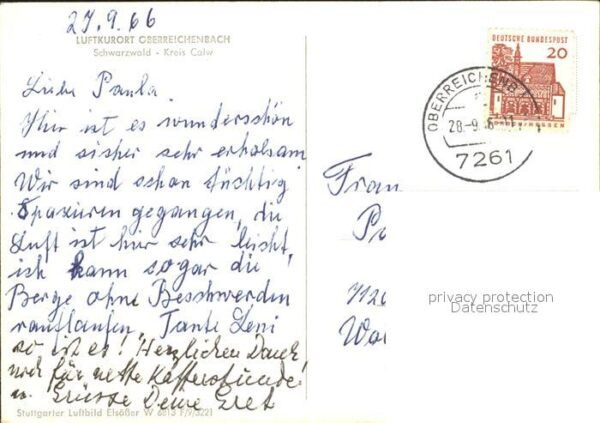 27.9.66
LUFTKURORT OBERREICHENBACH
Schwarzwald - Kreis Calw
Liebe Paula
Hier ist es wunderschön
und sicher sehr erholsam
Wir sind schon tüchtig
Spazieren gegangen, die
Luft ist hier sehr leicht,
ich kann sogar die
Berge ohne Beschwerden
rauflaufen, Tante Leni
so ist es! Herzlichen Dank
noch für nette Kaffeestunde!
u. Grüsse Deine Gret
Stuttgarter Luftbild Elsäßer W 6813 F/9/3221
DEUTSCHE BUNDESPOST
20
OBERREICHENB
7261
Frau
privacy protection
Datenschutz